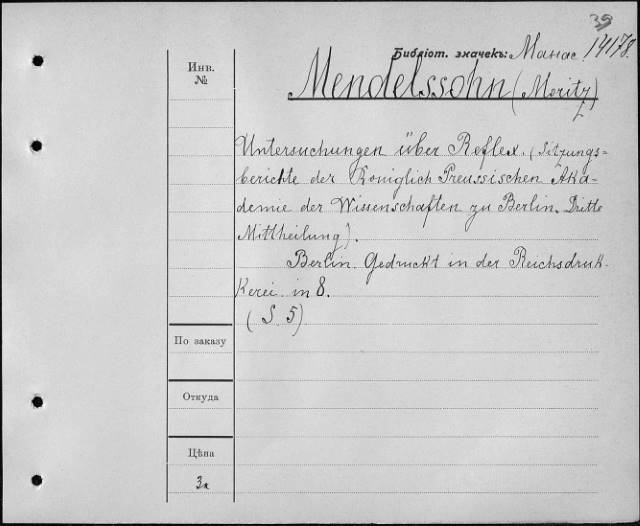 39
Библіот. значекъ: Манас 14178.
Инв.
№
Mendelssohn (Moritz)
Untersuchungen über Reflex. (Sitzungs=
berichte der Königlich Preussischen Aka-
demie der Wissenschaften zu Berlin. Dritte
Mittheilung).
Berlin. Gedruckt in der Reichsdruk-
kerei. in 8.
(S. 5)
По заказу
Откуда
Цѣна